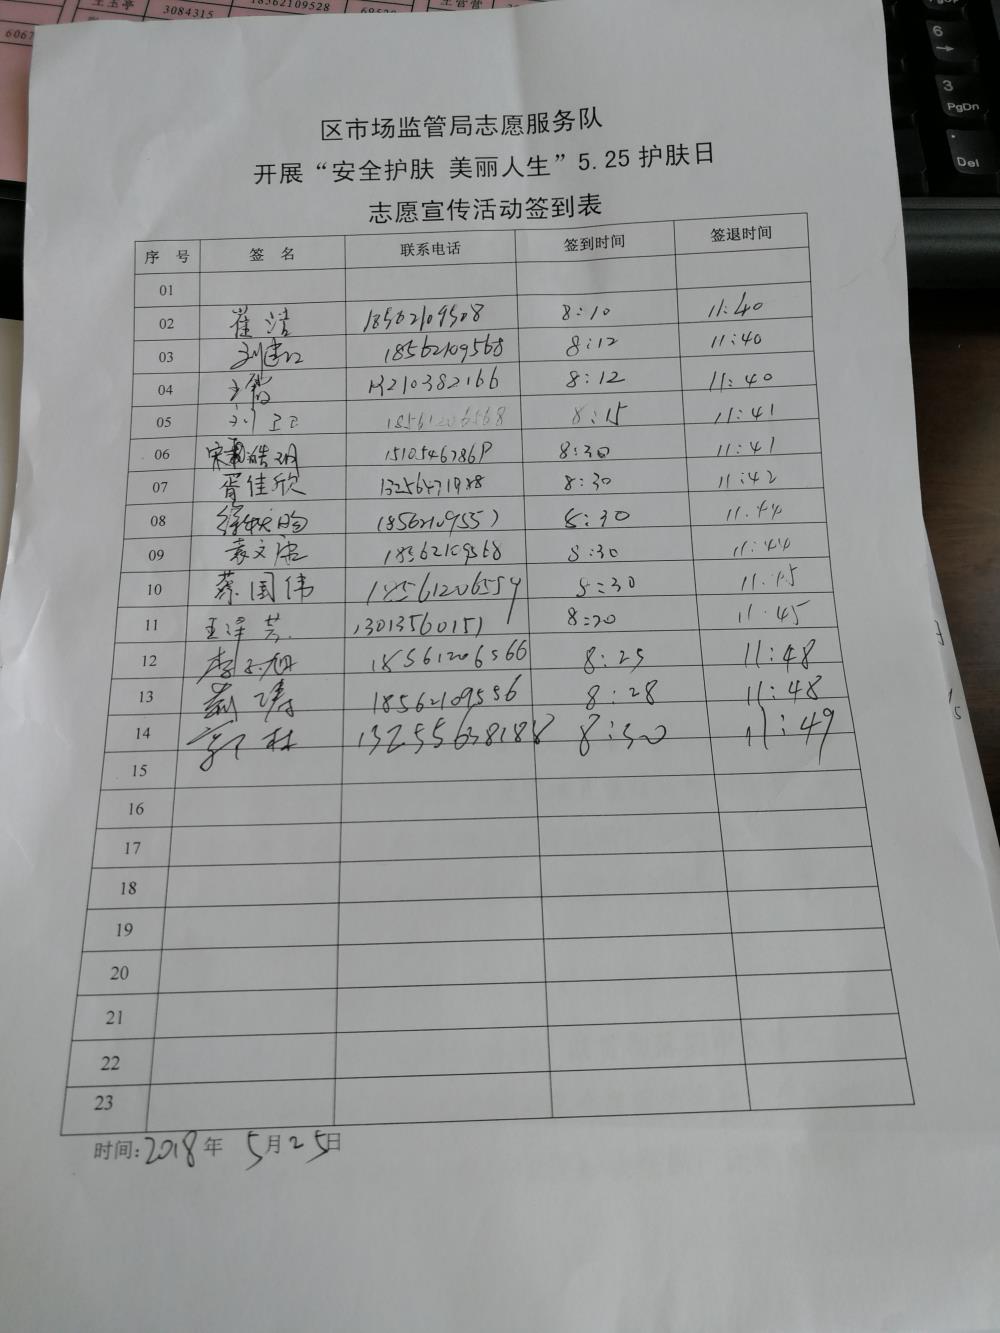 王玉亭 3084315 18562109528
区市场监管局志愿服务队
开展“安全护肤 美丽人生”5.25护肤日
志愿宣传活动签到表
序 号 签 名 联系电话 签到时间 签退时间
01
02 崔洁 18562109508 8:10 11:40
03 18562109568 8:12 11:40
04 13210382166 8:12 11:40
05 刘卫 18561206568 8:15 11:41
06 8:30 11:41
07 胥佳欣 8:30 11:42
08 8:30 11.44
09 袁文 18562109568 8:30 11:44
10 蔡国伟 18561206559 8:30 11:45
11 王泽 13013560151 8:20 11:45
12 18561206566 8:25 11:48
13 18562109556 8:28 11:48
14 郭林 13255638188 8:30 11:49
15
16
17
18
19
20
21
22
23
时间:2018年 5月25日
6
3
PgDn
Del